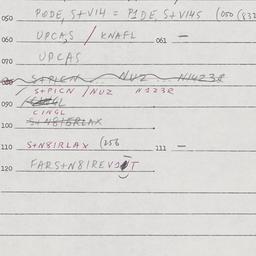 050 PODE, S+V14 = PIDE, S+V14S (050 (832
060 UPCAS / KNAFL 061 —
070 UPCAS
080 S+PICN NUZ N1423R
S+PICN / NUZ N123R
090 CINGL
CINGL
100 S+N8IRLAX
110 S+N8IRLAX (256 111 —
120 FARS+N8IREVIT